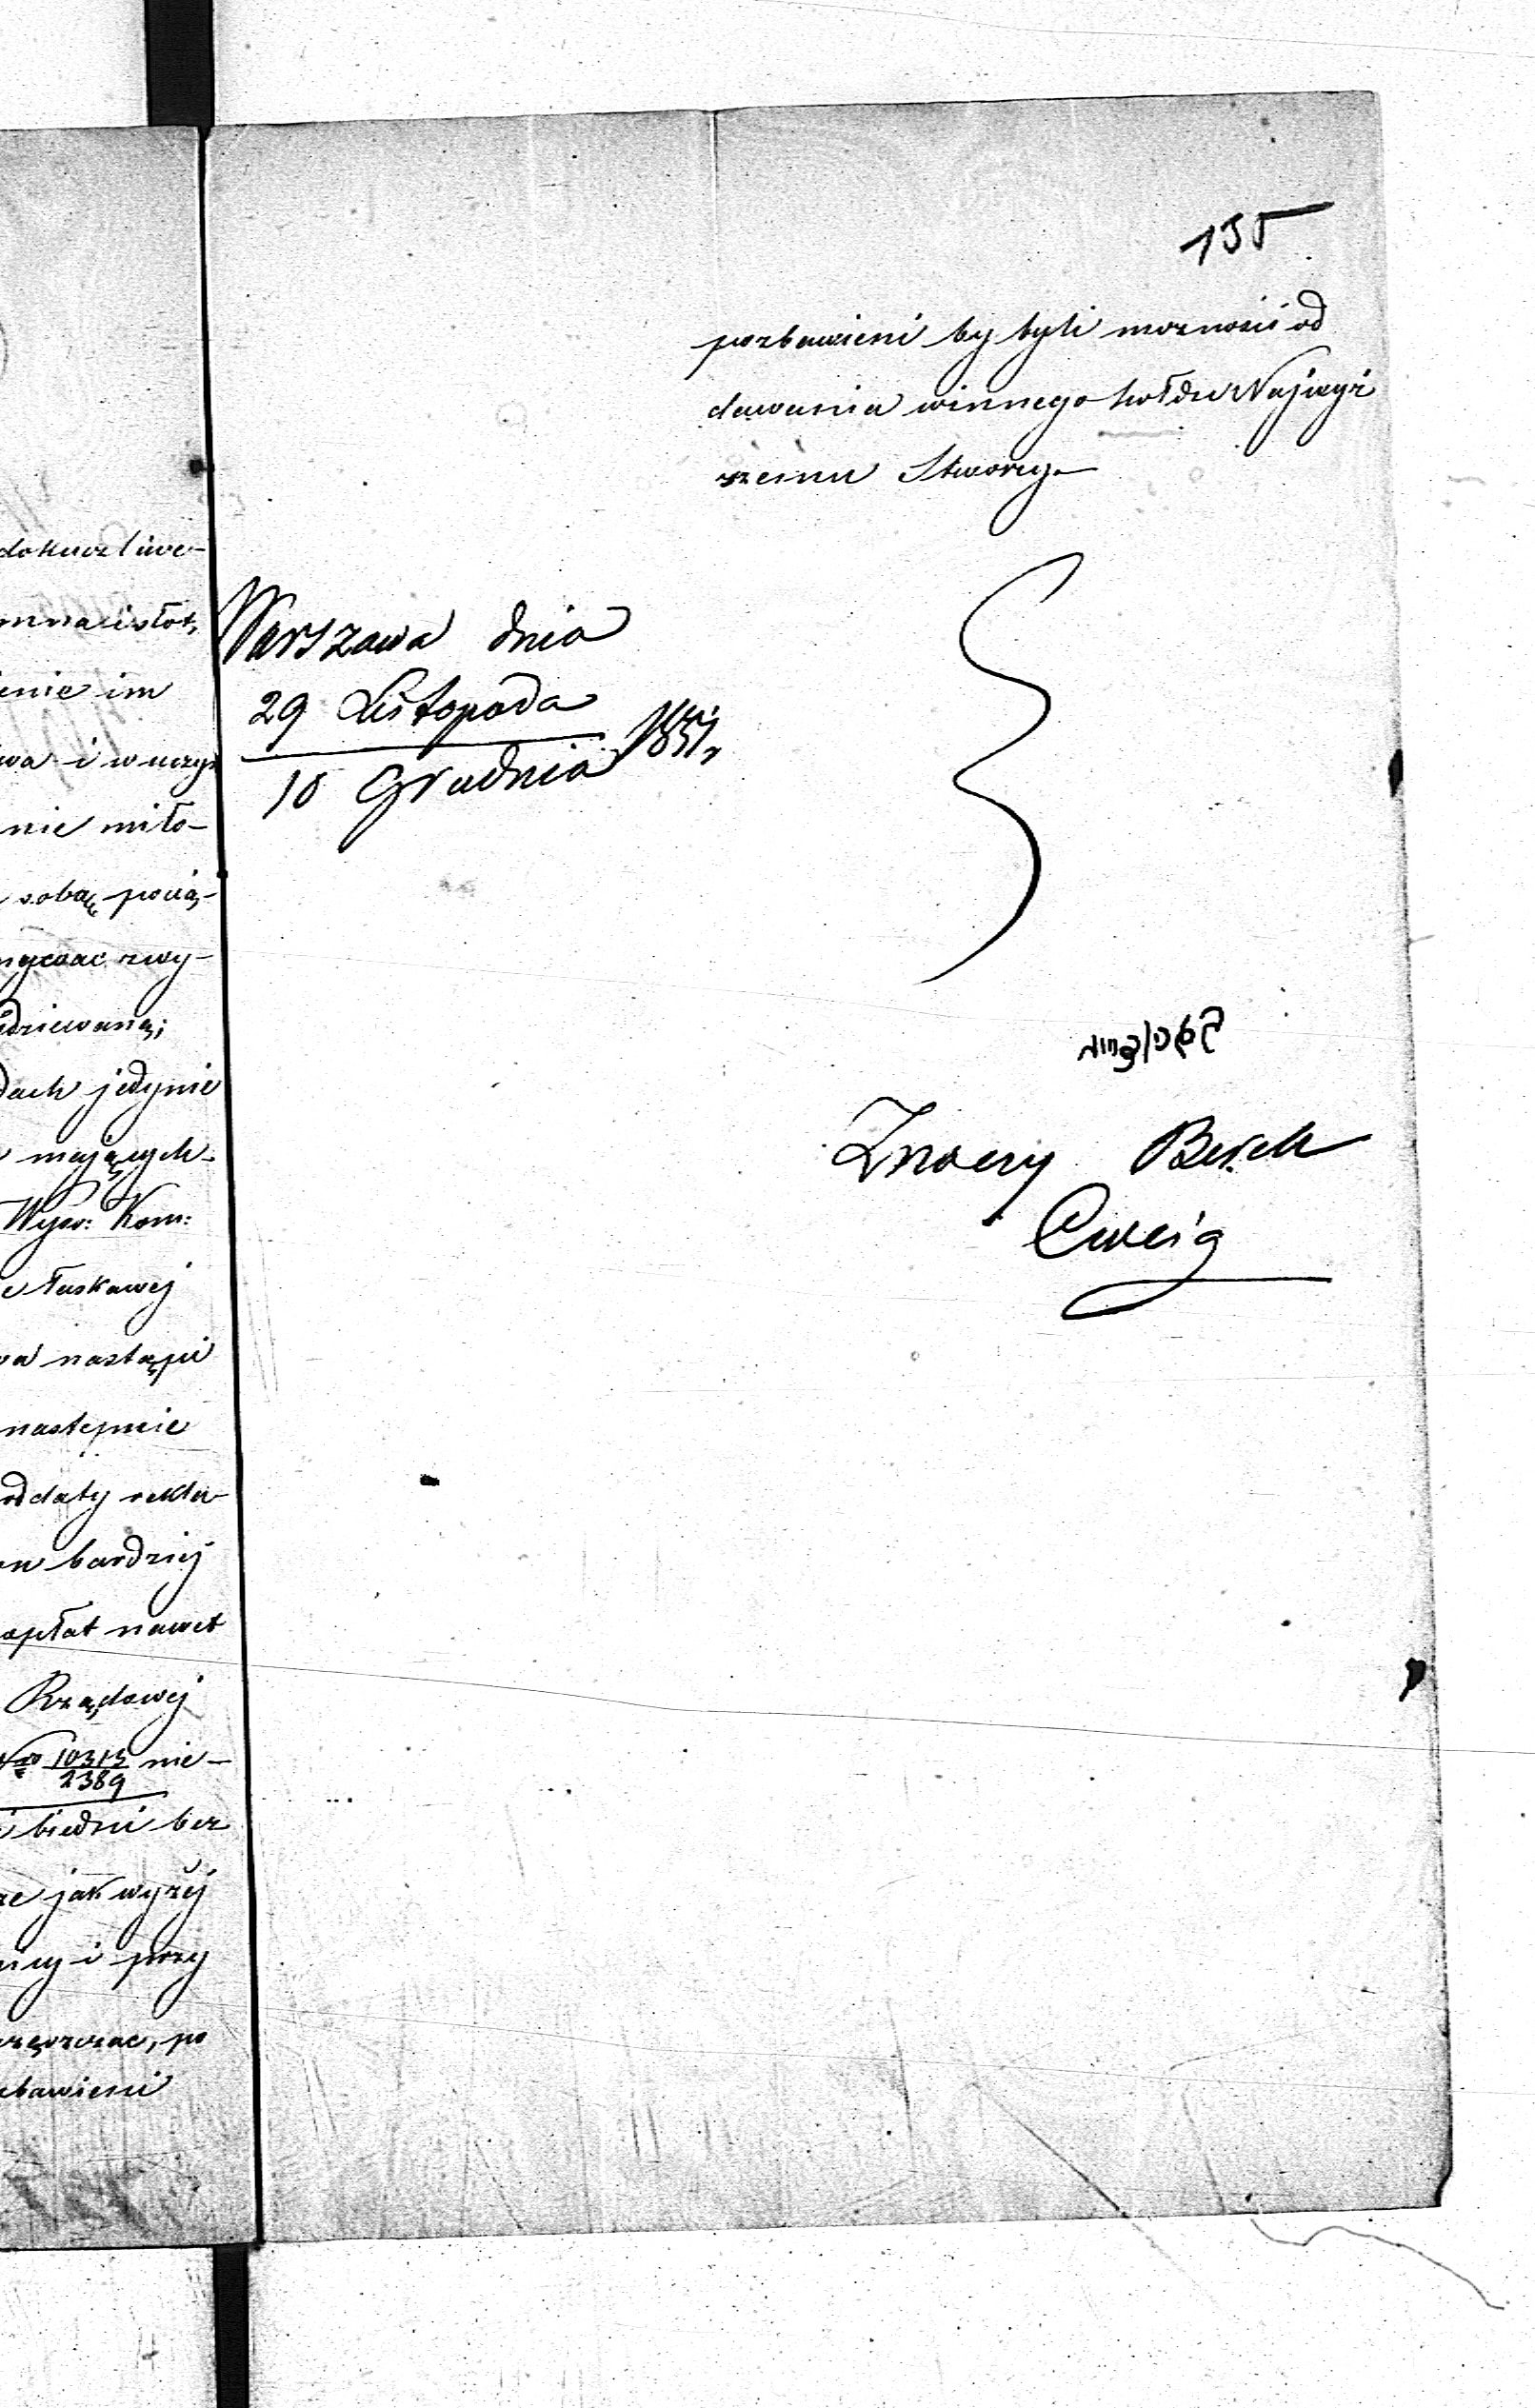 dokuczliwe-
istot,
enie im
wa i w uczy
nie miło-
sobą pocią-
zwy-
dziewaną;
dach jedynie
mających.
Wyso: Kom:
łaskawej
wa nastąpi
następnie
od daty rekla-
bardziej
opłat nawet
Rządowej
Nro 10313/2389 nie-
biedni bez
ze jak wyżej
i przy
po
zbawieni
135
pozbawieni by byli możność od
dawania winnego hołdu Najwyż
szemu Stworcy.-
Warszawa dnia
29 Listopada
10 Grudnia
Berek
Cweig